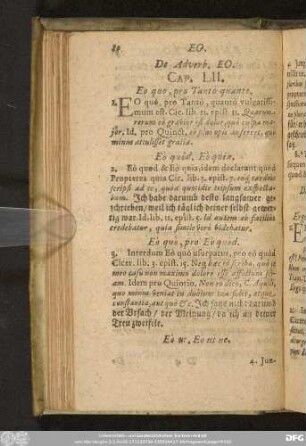 EO.
De Adverb. EO.
CAP. LII.
Eo quo, pro Tantò quantò.
1. EO quò, pro Tantò, quantò vulgatissi-
mum est. Cic. lib. 11. epist. 11. Quarum
rerum eò gravior est dolor, quò culpa ma-
jor. Id. pro Quinct.
minùs attulisset gratiæ.
Eò quòd. Eò quia.
2. Eò quod & Eò quia, idem declarant quòd
Propterea quia Cic. lib. 5. epist. 7. eoq; tardius
scripsi ad te, quòd quotidie teipsum expecta-
bam. Ich habe darumb desto langsamer ge-
schrieben/ weil ich täglich deiner selbst gewer-
tig war. Id. lib. 12. epist. Id autem eò facilius
credebatur, quia simile vero videbatur.
Eò quò, pro Eò quòd.
3. Interdum Eò quò usurpatur, pro eò quòd
Cicer. lib. 3. epist. 15. Neq; hæc eò scribo, quò te
meo casu non maximo dolore esse affectum sci-
am. Idem pro Quintio. Non eò dico, C. Aquili,
quo mihi veniat in dubium tua fides, atque
constantia, aut quò &c. Ich sage nicht darumb
der Ursach/ der Meinung/ da ich an deiner
Treu zweifele.
Eo ut, Eo ut ne.
4. Jun-